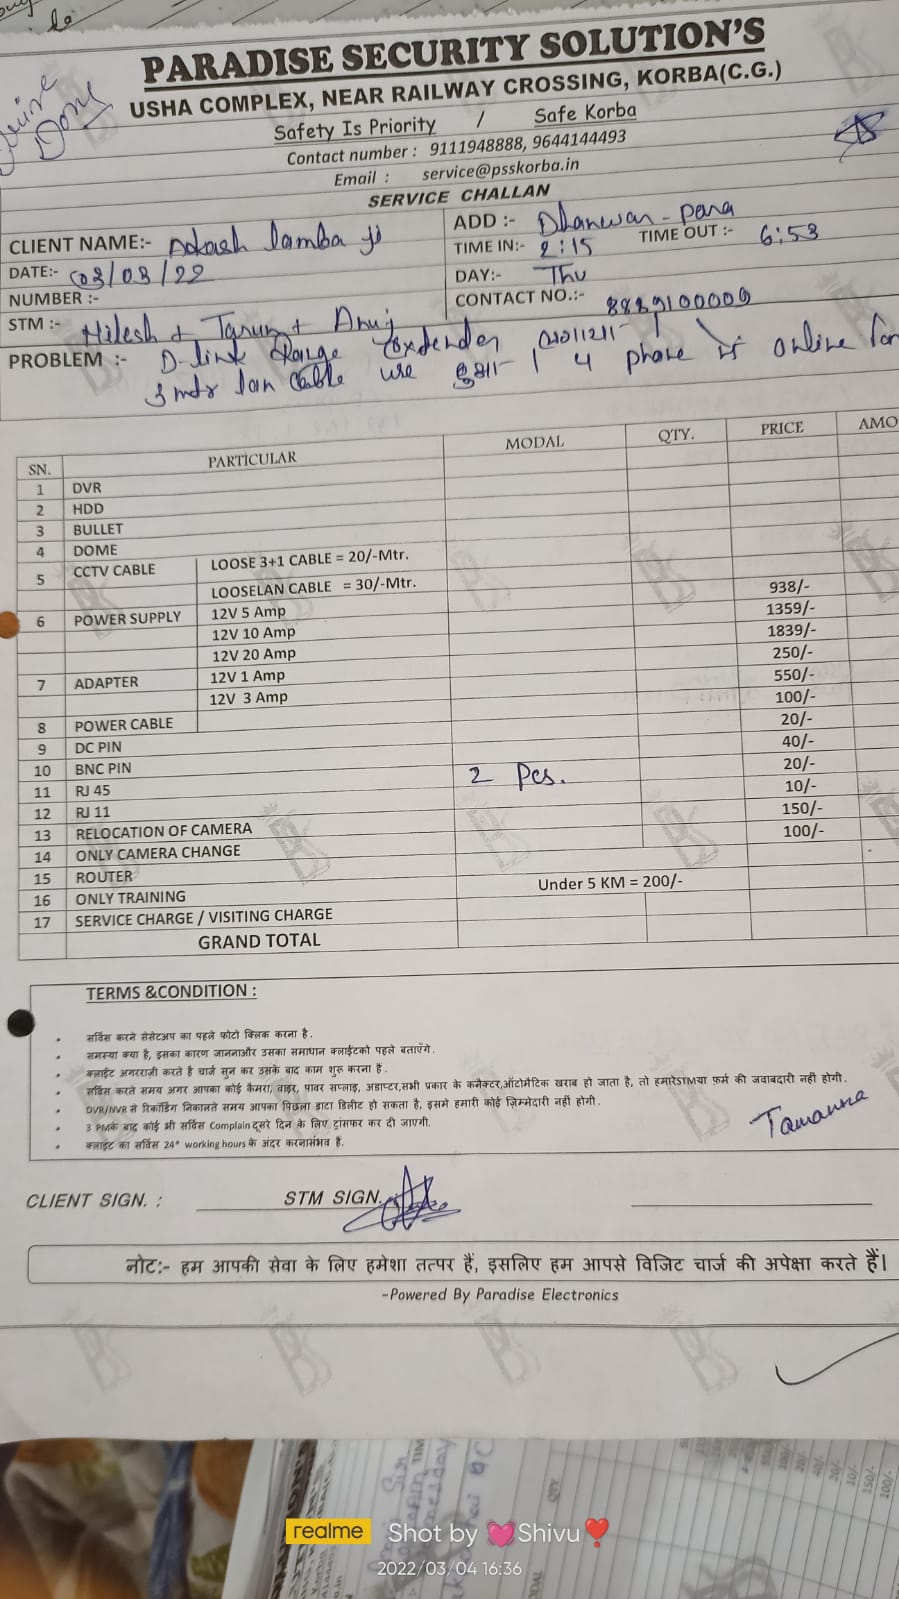 PARADISE SECURITY SOLUTION'S
USHA COMPLEX, NEAR RAILWAY CROSSING, KORBA(C.G.)
Safety Is Priority / Safe Korba
Contact number : 9111948888, 9644144493
Email : service@psskorba.in
Done
SERVICE CHALLAN
CLIENT NAME:- Aakash lamba ji
ADD :- Dhanwar-para
TIME IN:- 2:15 TIME OUT :- 6:53
DATE:- 03/03/22
DAY:- Thu
NUMBER :-
CONTACT NO.:- 8889100009
STM :- Nilesh + Tarun + Anuj
PROBLEM :- D-link Range Extender लगाया ।
3 mtr lan cable use हुआ । 4 phone is online for
SN. PARTICULAR MODAL QTY. PRICE AMO
1 DVR
2 HDD
3 BULLET
4 DOME
5 CCTV CABLE LOOSE 3+1 CABLE = 20/-Mtr.
LOOSELAN CABLE = 30/-Mtr.
6 POWER SUPPLY 12V 5 Amp 938/-
12V 10 Amp 1359/-
12V 20 Amp 1839/-
7 ADAPTER 12V 1 Amp 250/-
12V 3 Amp 550/-
8 POWER CABLE 100/-
9 DC PIN 20/-
10 BNC PIN 40/-
11 RJ 45 2 Pcs. 20/-
12 RJ 11 10/-
13 RELOCATION OF CAMERA 150/-
14 ONLY CAMERA CHANGE 100/-
15 ROUTER
16 ONLY TRAINING
17 SERVICE CHARGE / VISITING CHARGE Under 5 KM = 200/-
GRAND TOTAL
TERMS &CONDITION :
• सर्विस करने सेसेटअप का पहले फोटो क्लिक करना है.
• समस्या क्या है, इसका कारण जाननाऔर उसका समाधान क्लाईटको पहले बताएँगे.
• क्लाईट अगरराज़ी करते है चार्ज सुन कर उसके बाद काम शुरू करना है.
• सर्विस करते समय अगर आपका कोई कैमरा, वाइर, पावर सप्लाइ, अडाप्टर,सभी प्रकार के कनैक्टर,ऑटोमैटिक खराब हो जाता है, तो हमारेSTMया फ़र्म की जवाबदारी नहीं होगी.
• DVR/NVR से रिकॉर्डिंग निकालते समय आपका पिछला डाटा डिलीट हो सकता है, इसमे हमारी कोई ज़िम्मेदारी नहीं होगी.
• 3 PMके बाद कोई भी सर्विस Complain दूसरे दिन के लिए ट्रांसफर कर दी जाएगी.
• क्लाइंट का सर्विस 24* working hours के अंदर करनासंभव है.
Tamanna
CLIENT SIGN. : STM SIGN.
नोट:- हम आपकी सेवा के लिए हमेशा तत्पर हैं, इसलिए हम आपसे विजिट चार्ज की अपेक्षा करते हैं।
-Powered By Paradise Electronics
realme Shot by 💓Shivu❣️
2022/03/04 16:36